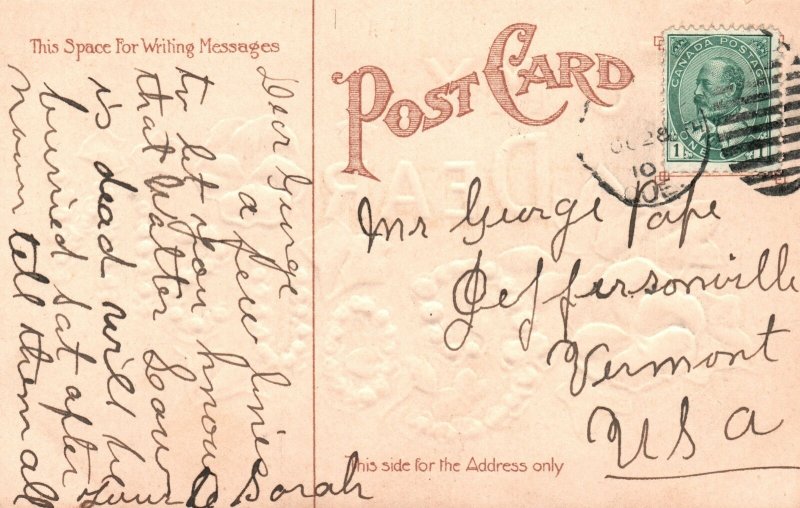 This Space For Writing Messages
POST CARD
CANADA POSTAGE
1 ONE 1
OC 28
10
QUE.
Dear George
a few lines
to let you know
that Walter
is dead will be
burried sat after
noon tell them all
Sarah
Mr George Pape
Jeffersonville
Vermont
USA
This side for the Address only